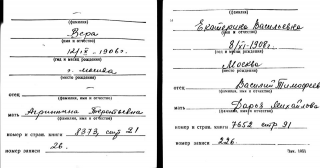 (фамилия)
Вера
(имя и отчество)
12/IX - 1906 г.
(год и месяц рождения)
г. Москва
(место рождения)
отец
(фамилия, имя и отчество)
мать Агриппина Терентьевна
(фамилия, имя и отчество)
номер и страв. книги 8373, стр 21
номер записи 26.
(фамилия)
Екатерина Васильевна
(имя и отчество)
8/XI - 1908 г.
(год и месяц рождения)
Москва
(место рождения)
отец Василий Тимофеев
(фамилия, имя и отчество)
мать Дарья Михайлова
(фамилия, имя и отчество)
номер и страв. книги 7652 стр 91
номер записи 226.